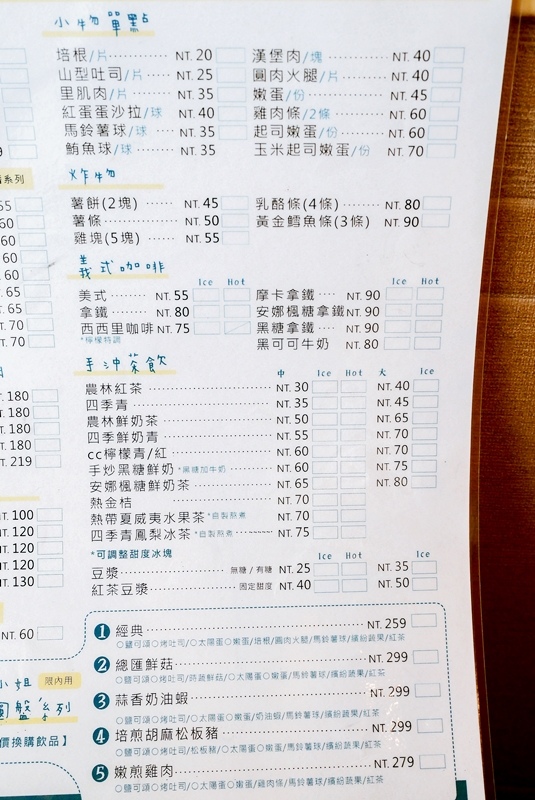 小物單點
培根/片 NT. 20
山型吐司/片 NT. 25
里肌肉/片 NT. 35
紅蘿蛋沙拉/球 NT. 40
馬鈴薯球/球 NT. 35
鮪魚球/球 NT. 35
漢堡肉/塊 NT. 40
圓肉火腿/片 NT. 40
嫩蛋/份 NT. 45
雞肉條/2條 NT. 60
起司嫩蛋/份 NT. 60
玉米起司嫩蛋/份 NT. 70
炸物
薯餅(2塊) NT. 45
薯條 NT. 50
雞塊(5塊) NT. 55
乳酪條(4條) NT. 80
黃金鱈魚條(3條) NT. 90
義式咖啡
Ice Hot
美式 NT. 55
拿鐵 NT. 80
西西里咖啡 NT. 75
*檸檬特調
Ice Hot
摩卡拿鐵 NT. 90
安娜楓糖拿鐵 NT. 90
黑糖拿鐵 NT. 90
黑可可牛奶 NT. 80
手沖茶飲
中 Ice Hot 大 Ice
農林紅茶 NT. 30 NT. 40
四季青 NT. 35 NT. 45
農林鮮奶茶 NT. 50 NT. 65
四季鮮奶青 NT. 55 NT. 70
cc檸檬青/紅 NT. 60 NT. 70
手炒黑糖鮮奶 *黑糖加牛奶 NT. 60 NT. 75
安娜楓糖鮮奶茶 NT. 65 NT. 80
熱金桔 NT. 70
熱帶夏威夷水果茶 *自製熬煮 NT. 70
四季青鳳梨冰茶 *自製熬煮 NT. 75
*可調整甜度冰塊
Ice Hot Ice
豆漿 無糖 / 有糖 NT. 25 NT. 35
紅茶豆漿 固定甜度 NT. 40 NT. 50
1 經典 NT. 259
○鹽可頌○烤吐司/○太陽蛋○嫩蛋/培根/圓肉火腿/馬鈴薯球/繽紛蔬果/紅茶
2 總匯鮮菇 NT. 299
○鹽可頌○烤吐司/時蔬鮮菇/○太陽蛋○嫩蛋/馬鈴薯球/繽紛蔬果/紅茶
3 蒜香奶油蝦 NT. 299
○鹽可頌○烤吐司/○太陽蛋○嫩蛋/奶油蝦/馬鈴薯球/繽紛蔬果/紅茶
4 焙煎胡麻松板豬 NT. 299
○鹽可頌○烤吐司/松板豬/○太陽蛋○嫩蛋/馬鈴薯球/繽紛蔬果/紅茶
5 嫩煎雞肉 NT. 279
○鹽可頌○烤吐司/○太陽蛋○嫩蛋/雞肉條/馬鈴薯球/繽紛蔬果/紅茶
系列
55
60
60
60
60
65
65
70
70
180
180
180
180
219
NT. 100
NT. 120
NT. 120
NT. 120
NT. 130
NT. 60
小姐 限內用
圓盤系列
價換購飲品】